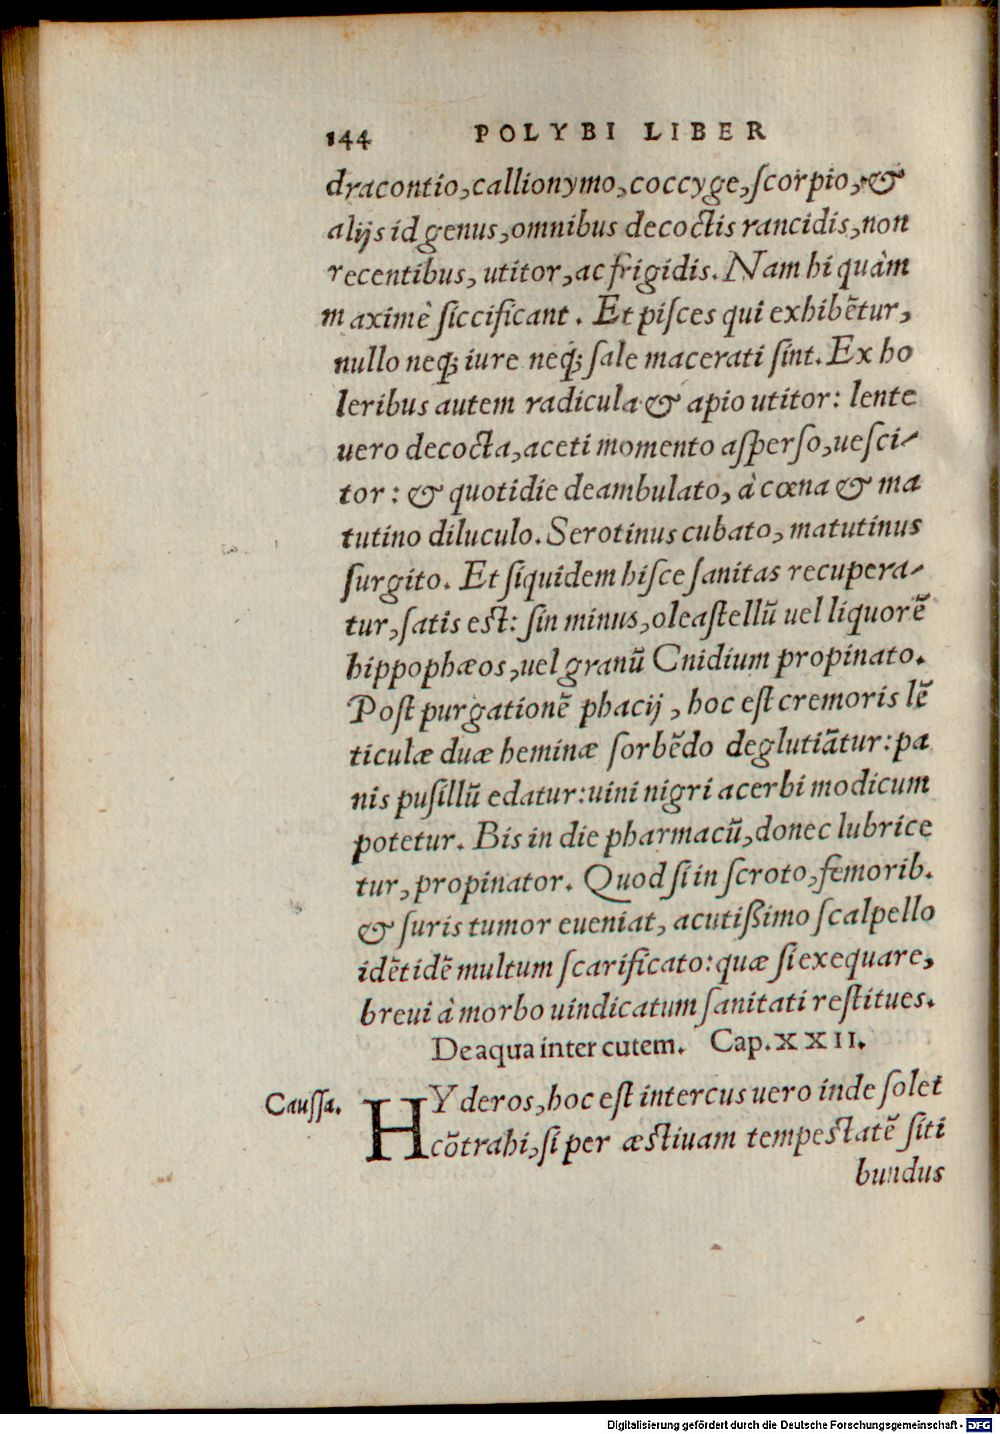 144 POLYBI LIBER
dracontio, callionymo, coccyge, ſcorpio, &
alijs id genus, omnibus decoctis rancidis, non
recentibus, utitor, ac frigidis. Nam hi quàm
maximè ſiccificant. Et piſces qui exhibẽtur,
nullo neq́; iure neq́; ſale macerati ſint. Ex ho
leribus autem radicula & apio utitor: lente
uero decocta, aceti momento aſperſo, ueſci-
tor: & quotidie deambulato, à cœna & ma
tutino diluculo. Serotinus cubato, matutinus
ſurgito. Et ſiquidem hiſce ſanitas recupera-
tur, ſatis eſt: ſin minus, oleaſtellũ uel liquorẽ
hippophæos, uel granũ Cnidium propinato.
Poſt purgationẽ phacij, hoc eſt cremoris lẽ
ticulæ duæ heminæ ſorbẽdo deglutiãtur: pa
nis puſillũ edatur: uini nigri acerbi modicum
potetur. Bis in die pharmacũ, donec lubrice
tur, propinator. Quod ſi in ſcroto, femorib.
& ſuris tumor eueniat, acutißimo ſcalpello
idẽtidẽ multum ſcarificato: quæ ſi exequare,
breui à morbo uindicatum ſanitati reſtitues.
De aqua inter cutem. Cap. XXII.
Cauſſa. HYderos, hoc eſt intercus uero inde ſolet
cõtrahi, ſi per æſtiuam tempeſtatẽ ſiti
bundus
Digitalisierung gefördert durch die Deutsche Forschungsgemeinschaft - DFG